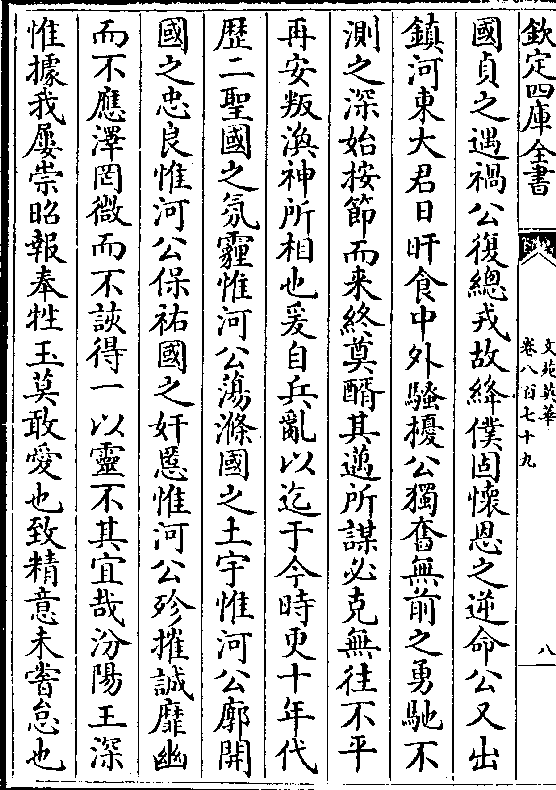 欽定四庫全書
文苑英華
卷八百七十九
八
國貞之遇禍公復總戎故絳僕固懷恩之逆命公又出
鎮河東大君日旰食中外騷擾公獨奮無前之勇馳不
測之深始按節而来終奠醑其邁所謀必克無往不平
再安叛渙神所相也爰自兵亂以迄于今時更十年代
歷二聖國之氛霾惟河公蕩滌國之土宇惟河公廓開
國之忠良惟河公保祐國之奸慝惟河公殄摧誠靡幽
而不應澤罔微而不談得一以靈不其宜哉汾陽王深
惟據我屢崇昭報奉牲玉莫敢愛也致精意未嘗怠也